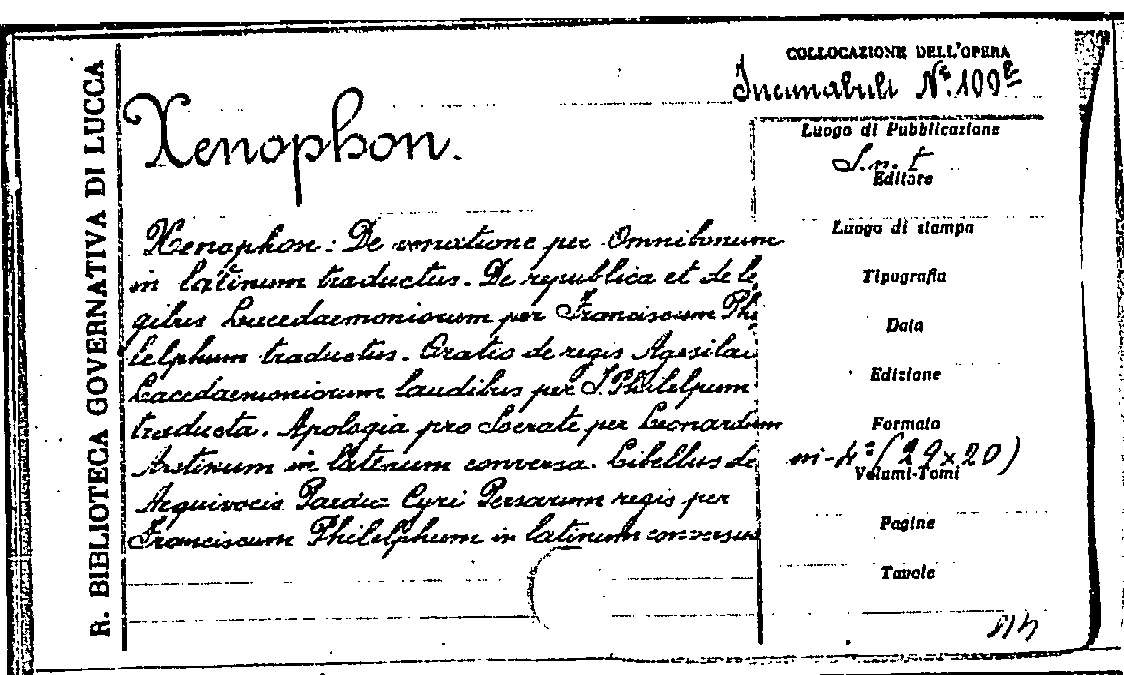 R. BIBLIOTECA GOVERNATIVA DI LUCCA
COLLOCAZIONE DELL'OPERA
Incunabuli N.º 109
Xenophon.
Xenophon: De venatione per Omnibonum
in latinum traductus. De republica et de le
gibus Lacedaemoniorum per Franciscum Phi
lelphum traductus. Oratio de regis Agesilai
Lacedaemoniorum laudibus per F. Philelpum
traducta. Apologia pro Socrate per Leonardum
Aretinum in latinum conversa. Libellus de
Aequivocis Paedia Cyri Persarum regis per
Franciscum Philelphum in latinum conversus
Luogo di Pubblicazione
S.n.t
Editore
Luogo di stampa
Tipografia
Data
Edizione
Formato
in-4º (29x20)
Volumi-Tomi
Pagine
Tavole